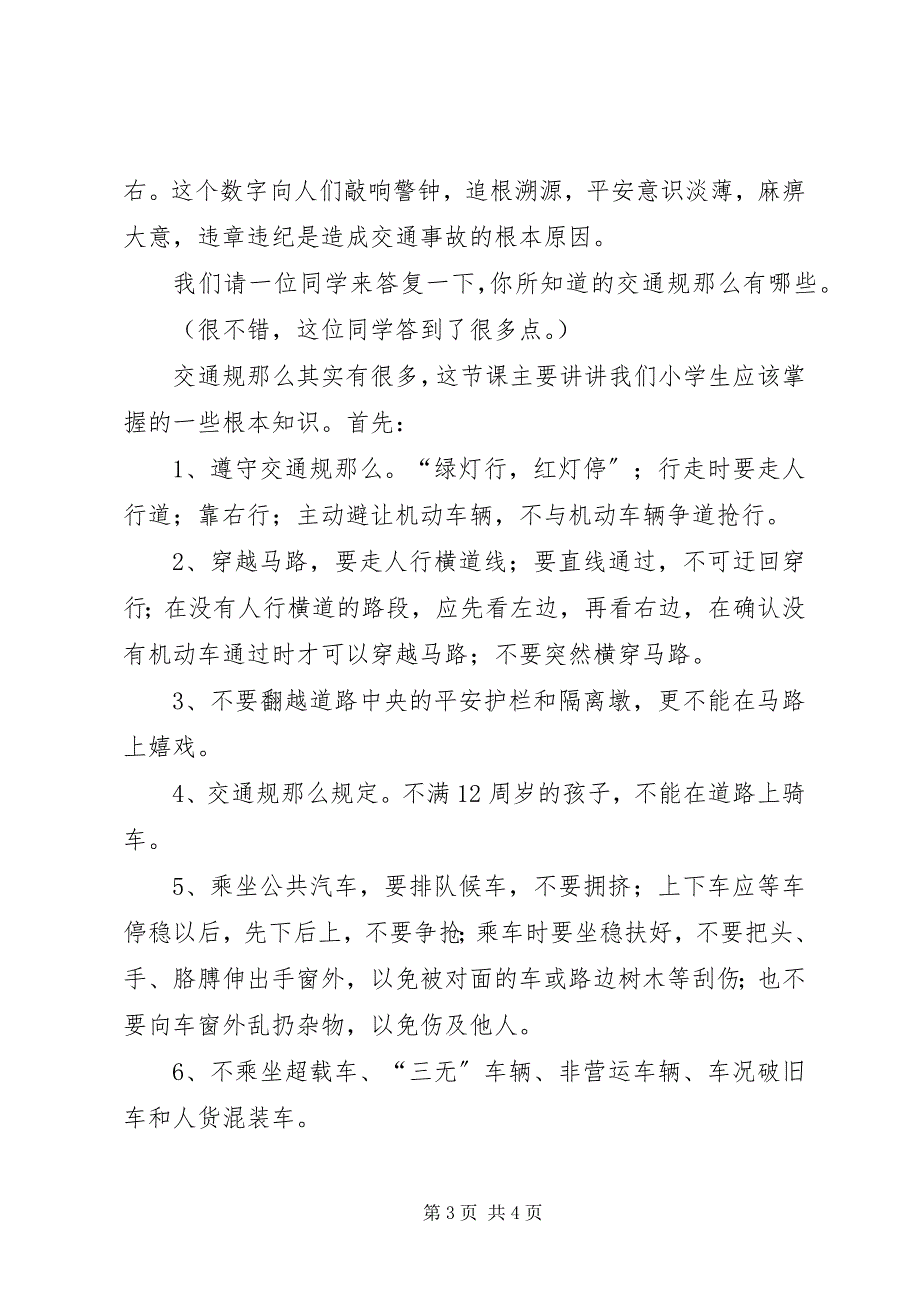 右。这个数字向人们敲响警钟，追根溯源，平安意识淡薄，麻痹
大意，违章违纪是造成交通事故的根本原因。
我们请一位同学来答复一下，你所知道的交通规那么有哪些。
（很不错，这位同学答到了很多点。）
交通规那么其实有很多，这节课主要讲讲我们小学生应该掌
握的一些根本知识。首先：
1、遵守交通规那么。“绿灯行，红灯停〞；行走时要走人
行道；靠右行；主动避让机动车辆，不与机动车辆争道抢行。
2、穿越马路，要走人行横道线；要直线通过，不可迂回穿
行；在没有人行横道的路段，应先看左边，再看右边，在确认没
有机动车通过时才可以穿越马路；不要突然横穿马路。
3、不要翻越道路中央的平安护栏和隔离墩，更不能在马路
上嬉戏。
4、交通规那么规定。不满 12 周岁的孩子，不能在道路上骑
车。
5、乘坐公共汽车，要排队候车，不要拥挤；上下车应等车
停稳以后，先下后上，不要争抢；乘车时要坐稳扶好，不要把头、
手、胳膊伸出手窗外，以免被对面的车或路边树木等刮伤；也不
要向车窗外乱扔杂物，以免伤及他人。
6、不乘坐超载车、“三无〞车辆、非营运车辆、车况破旧
车和人货混装车。
第 3 页 共 4 页